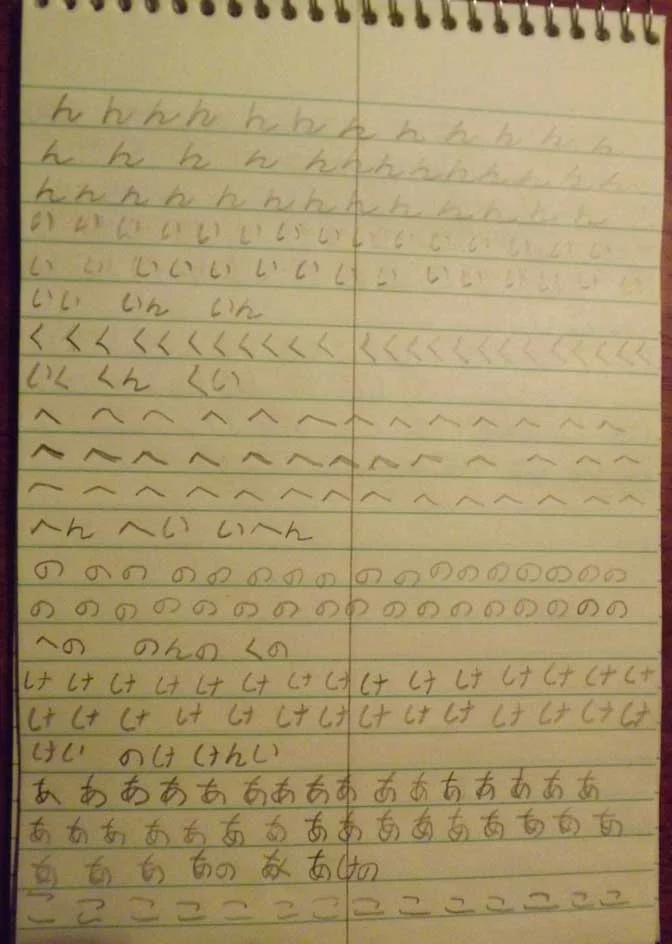 ん ん ん ん ん ん ん ん ん ん ん ん
ん ん ん ん ん ん ん ん ん ん ん ん ん
ん ん ん ん ん ん ん ん ん ん ん ん ん
い い い い い い い い い い い い い い い
い い い い い い い い い い い い い い
いい いん いん
く く く く く く く く く く く く く く く く く く く く く く く く
いく くん くい
へ へ へ へ へ へ へ へ へ へ へ へ へ
へ へ へ へ へ へ へ へ へ へ へ へ へ
へ へ へ へ へ へ へ へ へ へ へ へ へ へ
へん へい いへん
の の の の の の の の の の の の の の の の
の の の の の の の の の の の の の の の の
への のんの くの
け け け け け け け け け け け け け け け
け け け け け け け け け け け け け け け
けい のけ けんい
あ あ あ あ あ あ あ あ あ あ あ あ あ あ あ
あ あ あ あ あ あ あ あ あ あ あ あ あ あ あ あ
あ あ あ あの あく あけの
こ こ こ こ こ こ こ こ こ こ こ こ こ